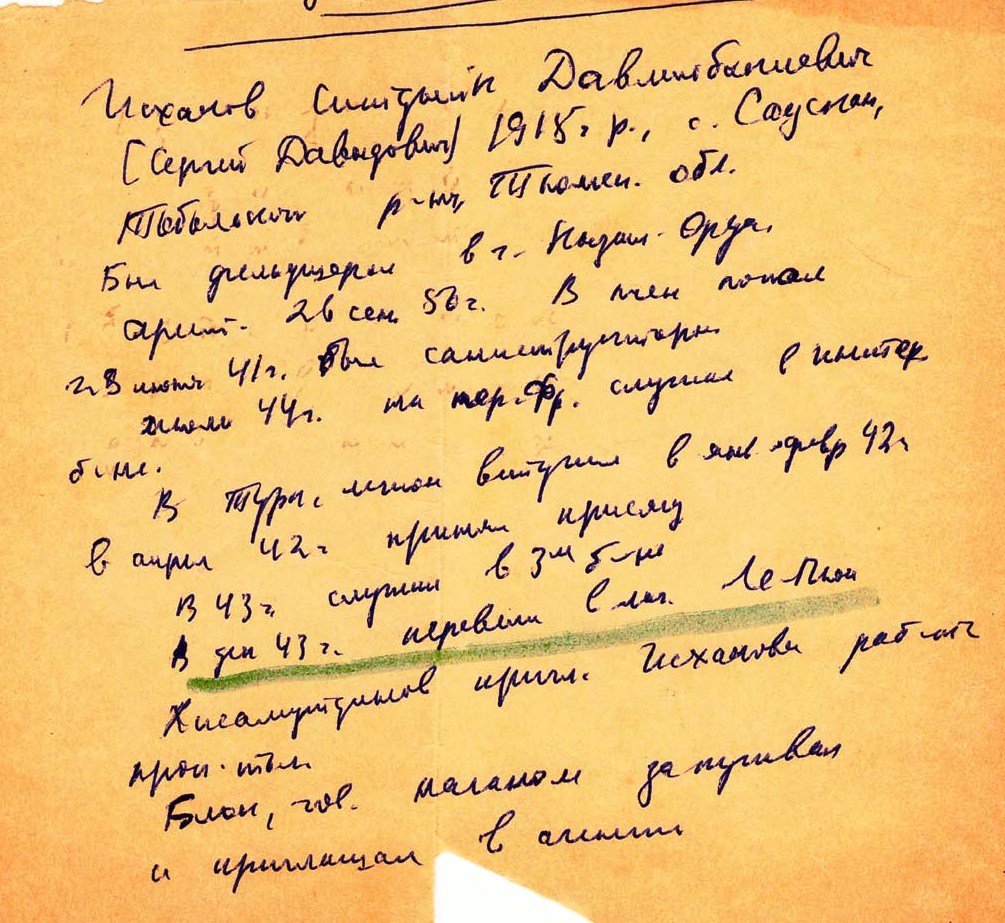 Исхаков Ситдыик Давлетбакиевич
(Сергей Давыдович) 1915 г. р., с. Саускан,
Тобольский р-н, Тюмен. обл.
Был фельдшером в г. Кзыл-Орда.
арест. 26 сен. 50 г. В плен попал
в июне 41 г. был санинструктором
44 г. на тер. Фр. служил в интер.
б-не.
В Турк. легион вступил в янв - февр 42 г
в апрел 42 г принял присягу
В 43 г. служил в 3м б-не
В дек 43 г. перевели в лаг. Ле-Пюи
Хисамутдинов пригл. Исхакова работ
Блок, гов. наганом запугивал
и приглашал в агенты